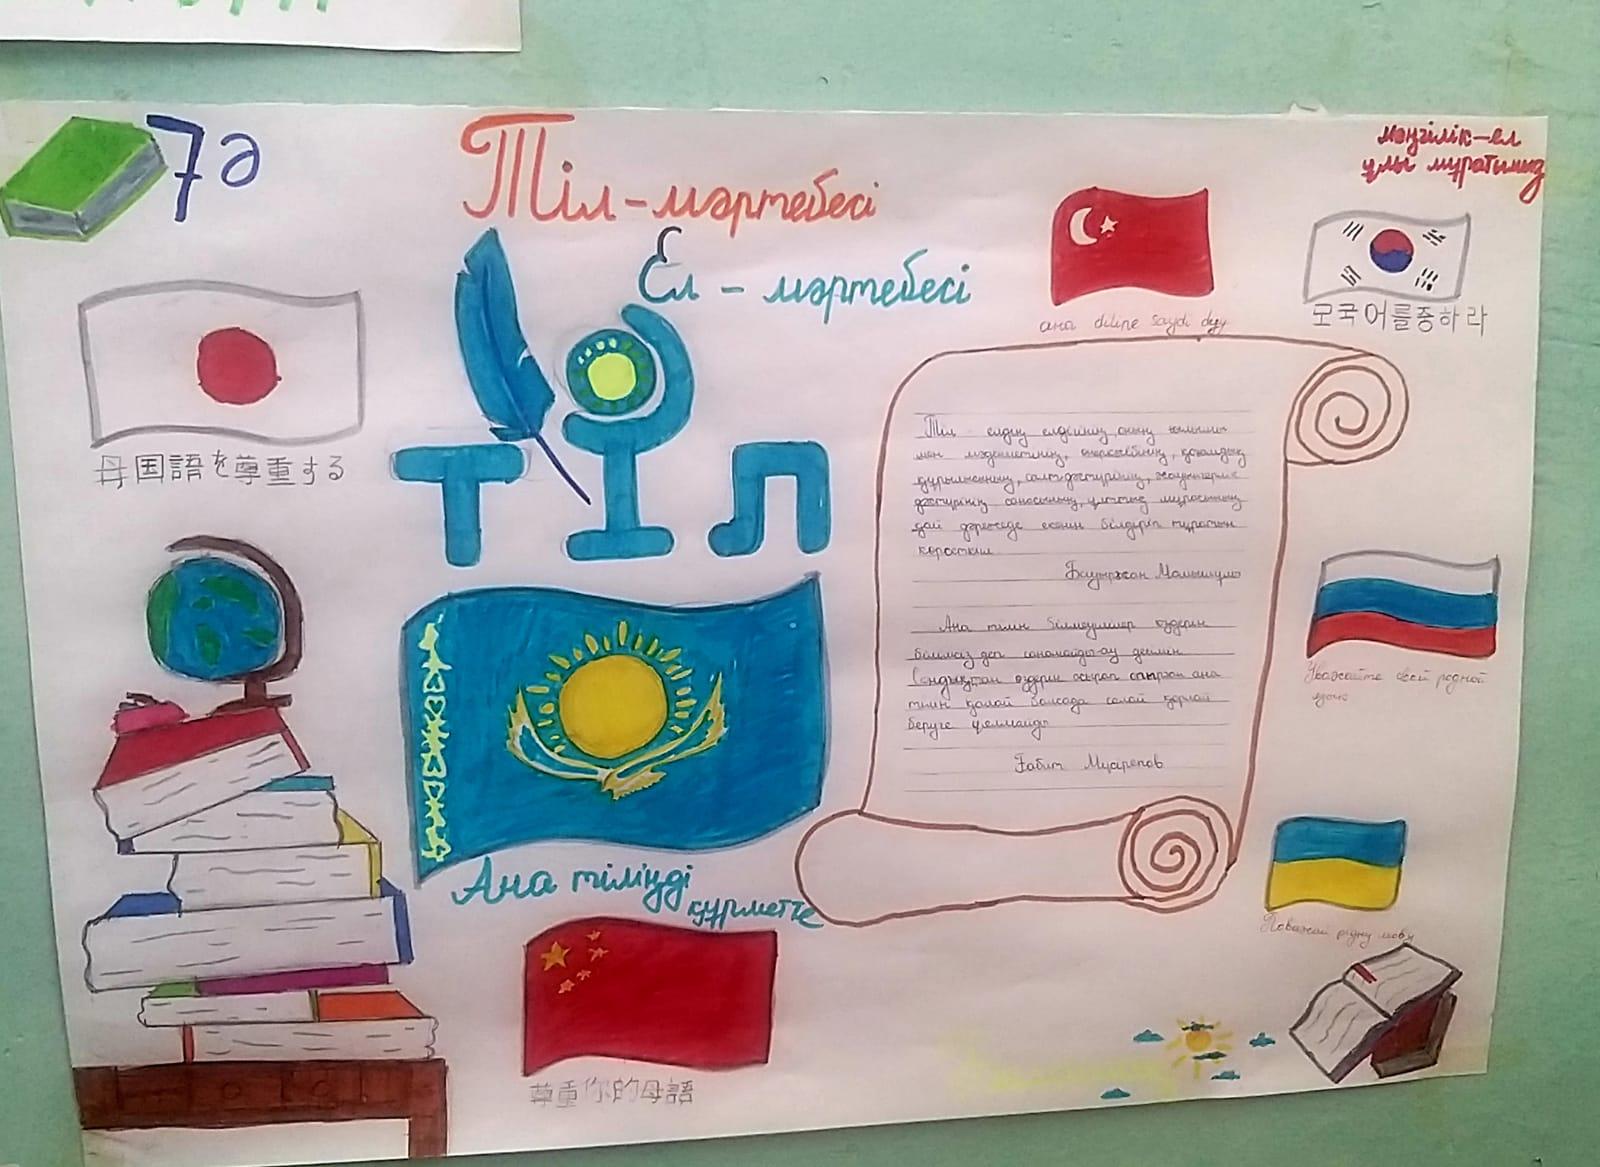 7ә
Тіл-мәртебесі
Ел - мәртебесі
мәңгілік-ел
ұлы мұратымыз
母国語を尊重する
ана diline saydi duy
모국어를중하라
тіл
Тіл - елдің елдігінің, оның ғылымы
мен мәдениетінің, өнеркәсібінің, қоғамдық
құрылысының, салт-дәстүрінің, жауынгерлік
дәстүрінің санасының, ұлттық мұрасының
дәрежеде екенін білдеріп тұратын
көрсеткіш
Бауыржан Момышұлы
Ана тілін білмеушілер өздерін
баймыз деп санамайды-ау деймін
Сондықтан өздерін асырап отырған ана
тілін қалай болсада солай қорлай
беруге ұялмайды
Ғабит Мүсірепов
Уважайте свой родной
язык
Ана тіліңді
құрметте
Поважай рідну мову
尊重你的母語